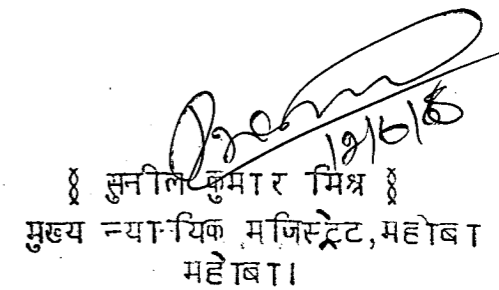 § सुनील कुमार मिश्र §
मुख्य न्यायिक मजिस्ट्रेट,महोबा
महोबा।